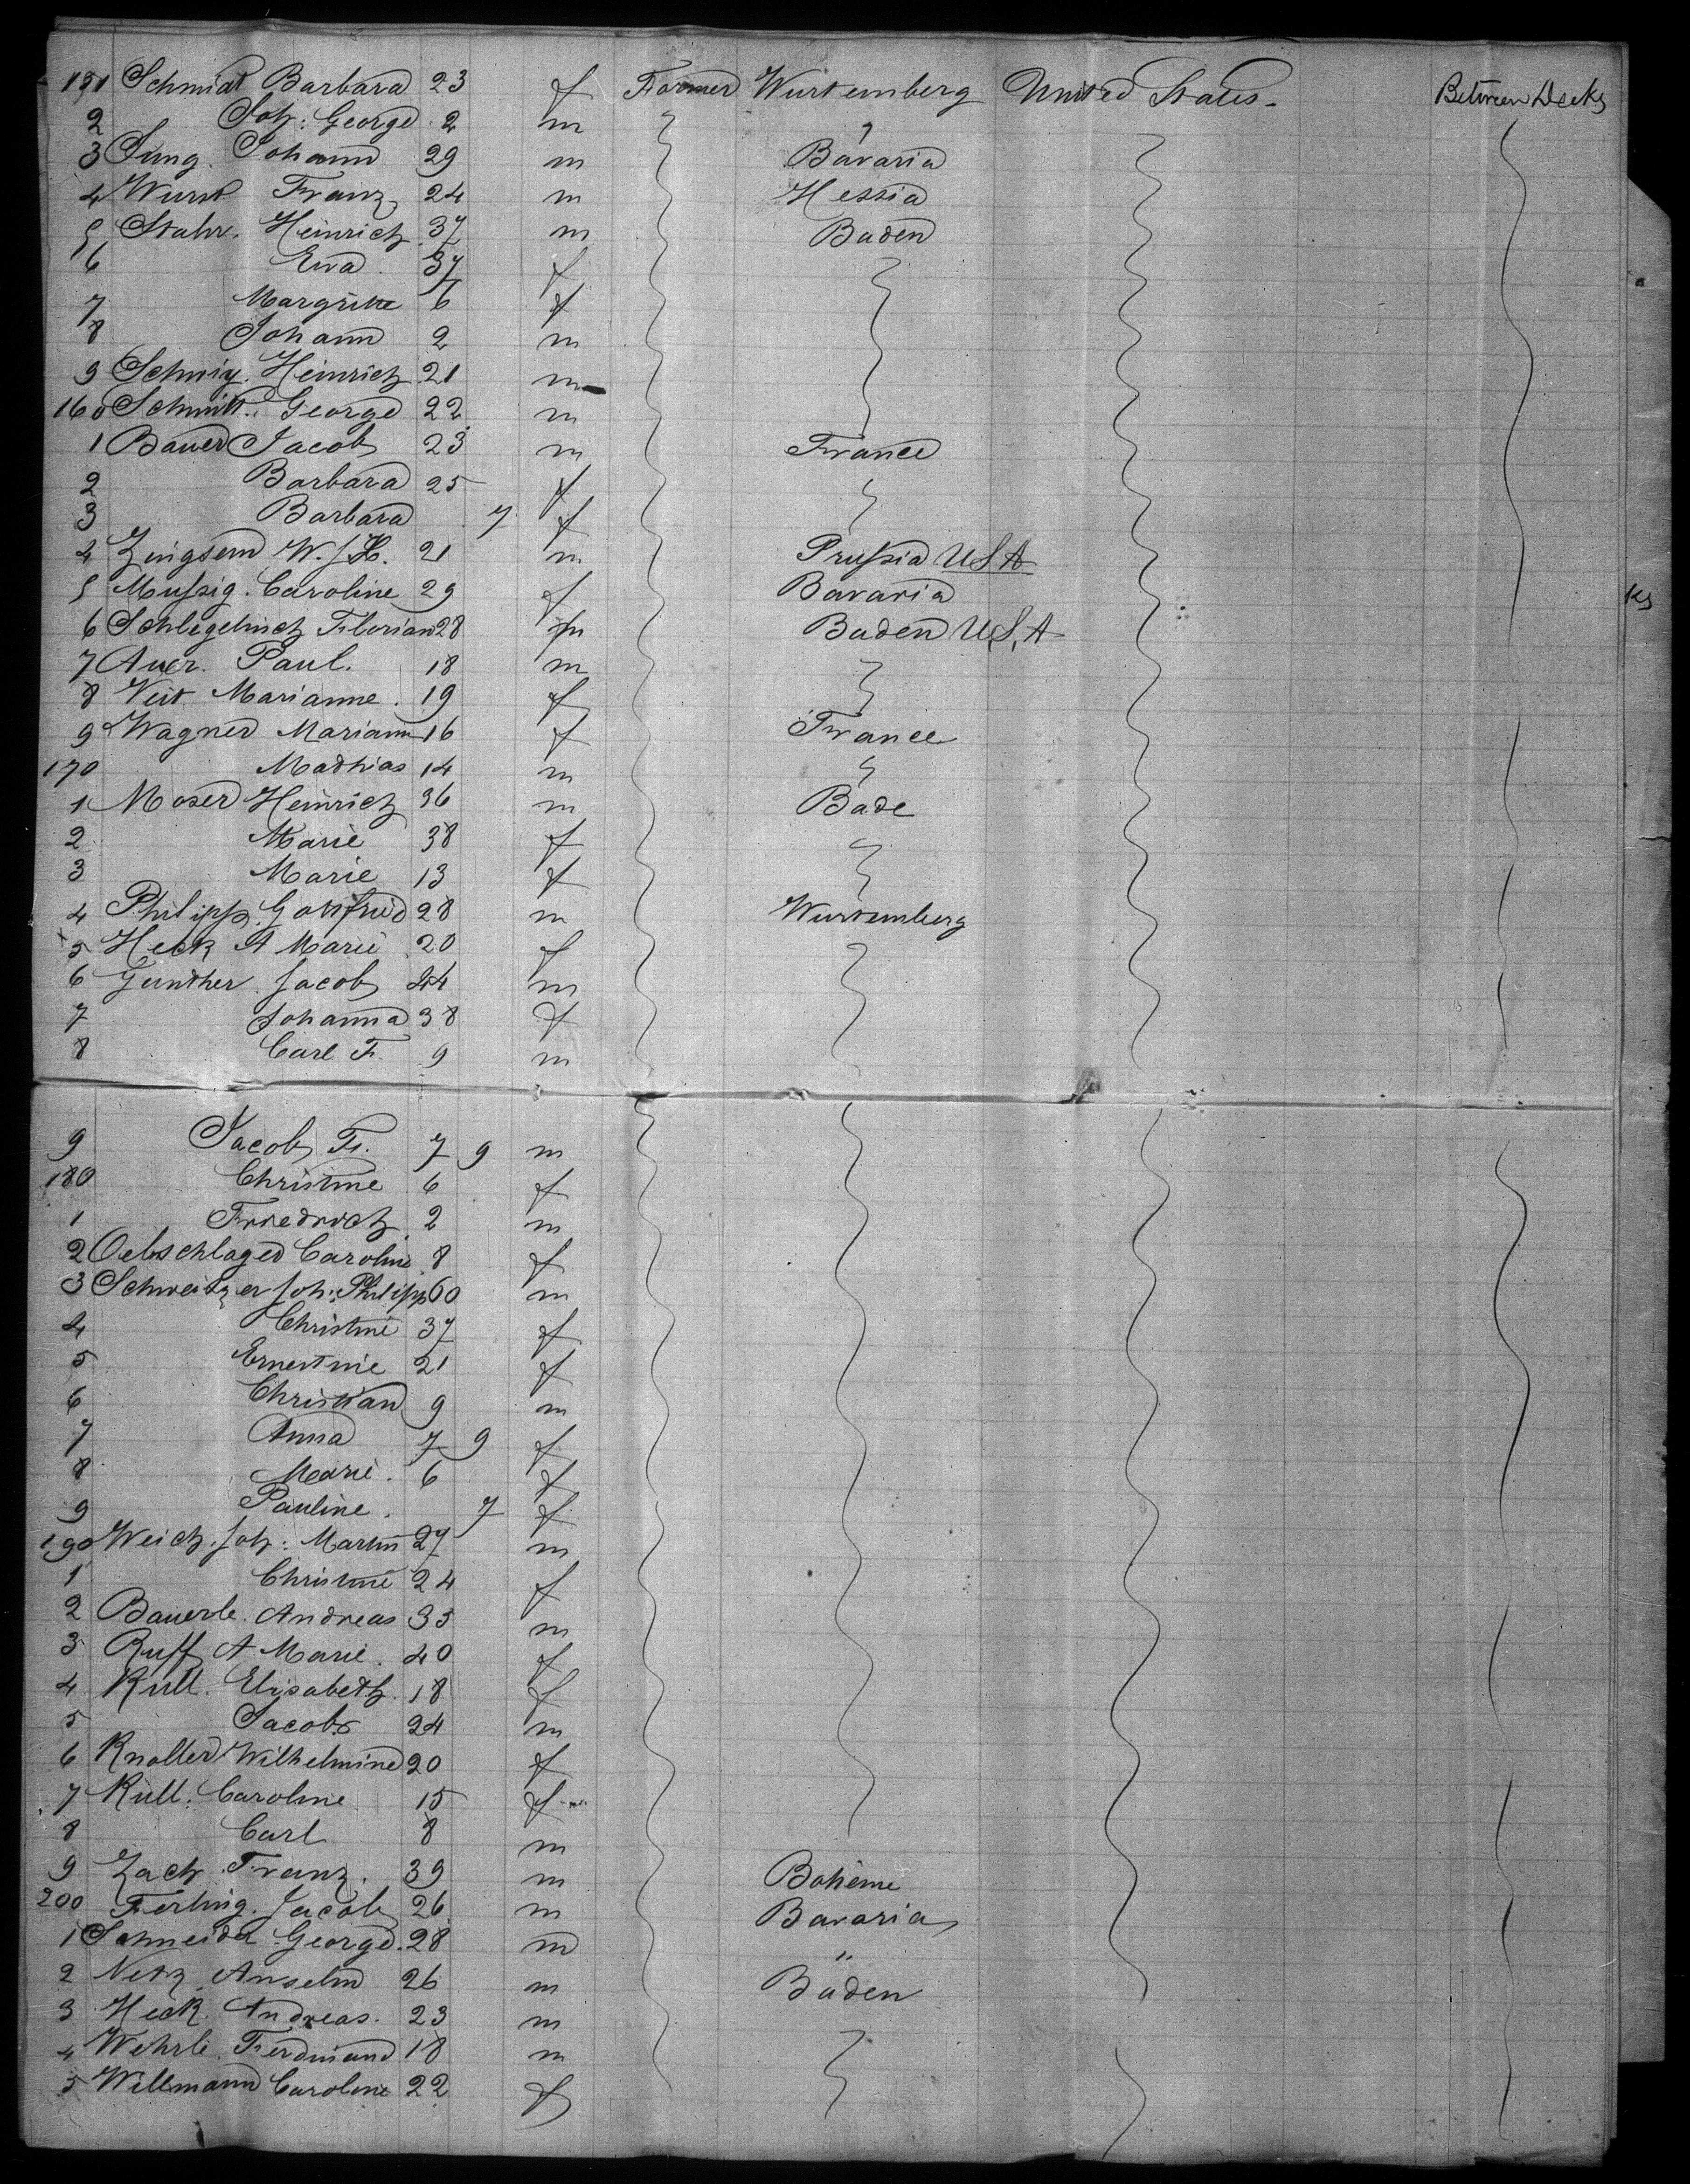 151 Schmidt Barbara 23 f Farmer Wurtemberg United States. Between Decks
2 Joh: George 2 m
3 Jung. Johann 29 m Bavaria
4 Wurst Franz 24 m Hessia
5 Stahr. Heinrich 37 m Baden
6 Eva 37 f
7 Margrithe 6 f
8 Johann 2 m
9 Heinrich 21 m
160 Schmitt. George 22 m
1 Bauer Jacob 23 m France
2 Barbara 25 f
3 Barbara 7 f
4 Zingsem W. 21 m Prussia USA
5 Mussig. Caroline 29 f Bavaria
6 Florian 28 m Baden U.S.A
7 Auer. Paul. 18 m
8 Veit Marianne. 19 f
9 Wagner Mariann 16 f France
170 Mathias 14 m
1 Moser Heinrich 36 m Bade
2 Marie 38 f
3 Marie 13 f
4 Philipp. Gottfried 28 m Wurtemberg
5 Heck A Marie 20 f
6 Gunther. Jacob 44 m
7 Johanna 38 f
8 Carl F. 9 m
9 Jacob Fr. 7 9 m
180 Christine 6 f
1 Friedrich 2 m
2 Oelschlager Caroline 8 f
3 Schweitzer Joh: Philipp 60 m
4 Christine 37 f
5 Ernestine 21 f
6 Christian 9 m
7 Anna 7 9 f
8 Marie. 6 f
9 Pauline. 7 f
190 Weich. Joh: Martin 27 m
1 Christine 24 f
2 Bauerle. Andreas 35 m
3 Ruff A Marie. 40 f
4 Kull. Elisabeth. 18 f
5 Jacob 24 m
6 Knoller Wilhelmine 20 f
7 Kull. Caroline 15 f
8 Carl 8 m
9 Zach Franz. 39 m Bohême
200 Ferling. Jacob 26 m Bavaria
1 Schneider George. 28 m "
2 Netz Anselm 26 m Baden
3 Heck. Andreas. 23 m
4 Wehrle. Ferdinand 18 m
5 Willmann Caroline 22 f